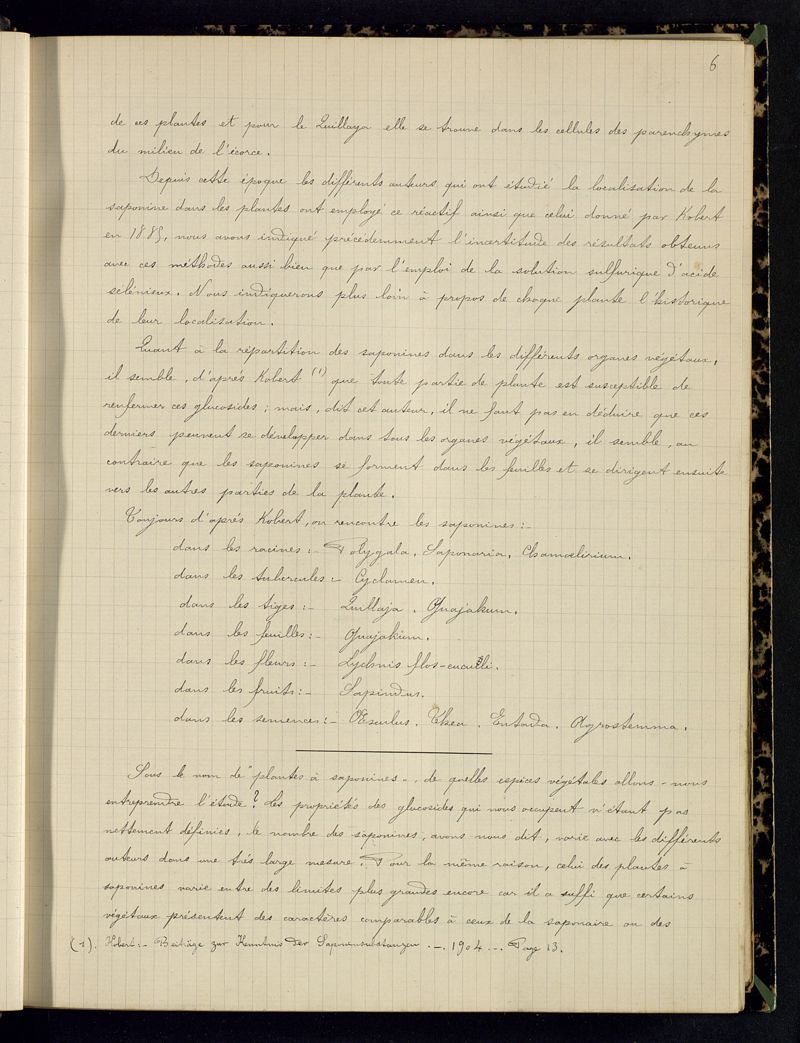 6
de ces plantes et pour le Quillaya elle se trouve dans les cellules des parenchymes
du milieu de l'écorce.
Depuis cette époque les différents auteurs qui ont étudié la localisation de la
saponine dans les plantes ont employé ce réactif ainsi que celui donné par Kobert
en 1885, nous avons indiqué précédemment l'incertitude des résultats obtenus
avec ces méthodes aussi bien que par l'emploi de la solution sulfurique d'acide
sélénieux. Nous indiquerons plus loin à propos de chaque plante l'historique
de leur localisation.
Quant à la répartition des saponines dans les différents organes végétaux,
il semble, d'après Kobert (1) que toute partie de plante est susceptible de
renfermer ces glucosides ; mais, dit cet auteur, il ne faut pas en déduire que ces
derniers peuvent se développer dans tous les organes végétaux, il semble, au
contraire que les saponines se forment dans les feuilles et se dirigent ensuite
vers les autres parties de la plante.
Toujours d'après Kobert, on rencontre les saponines :-
dans les racines :- Polygala, Saponaria, Chamœlirium.
dans les tubercules :- Cyclamen.
dans les tiges :- Quillaja. Guajakum.
dans les feuilles :- Guajakum.
dans les fleurs :- Lychnis flos-cuculli.
dans les fruits :- Sapindus.
dans les semences :- Œsculus. Thea. Entada. Agrostemma.
Sous le nom de "plantes à saponines", de quelles espèces végétales allons-nous
entreprendre l'étude ? Les propriétés des glucosides qui nous occupent n'étant pas
nettement définies, le nombre des saponines, avons nous dit, varie avec les différents
auteurs dans une très large mesure. Pour la même raison, celui des plantes à
saponines varie entre des limites plus grandes encore car il a suffi que certains
végétaux présentent des caractères comparables à ceux de la saponaire ou des
(1). Kobert :- Beiträge zur Kenntnis der Saponinsubstanzen. -. 1904 -.. Page 13.